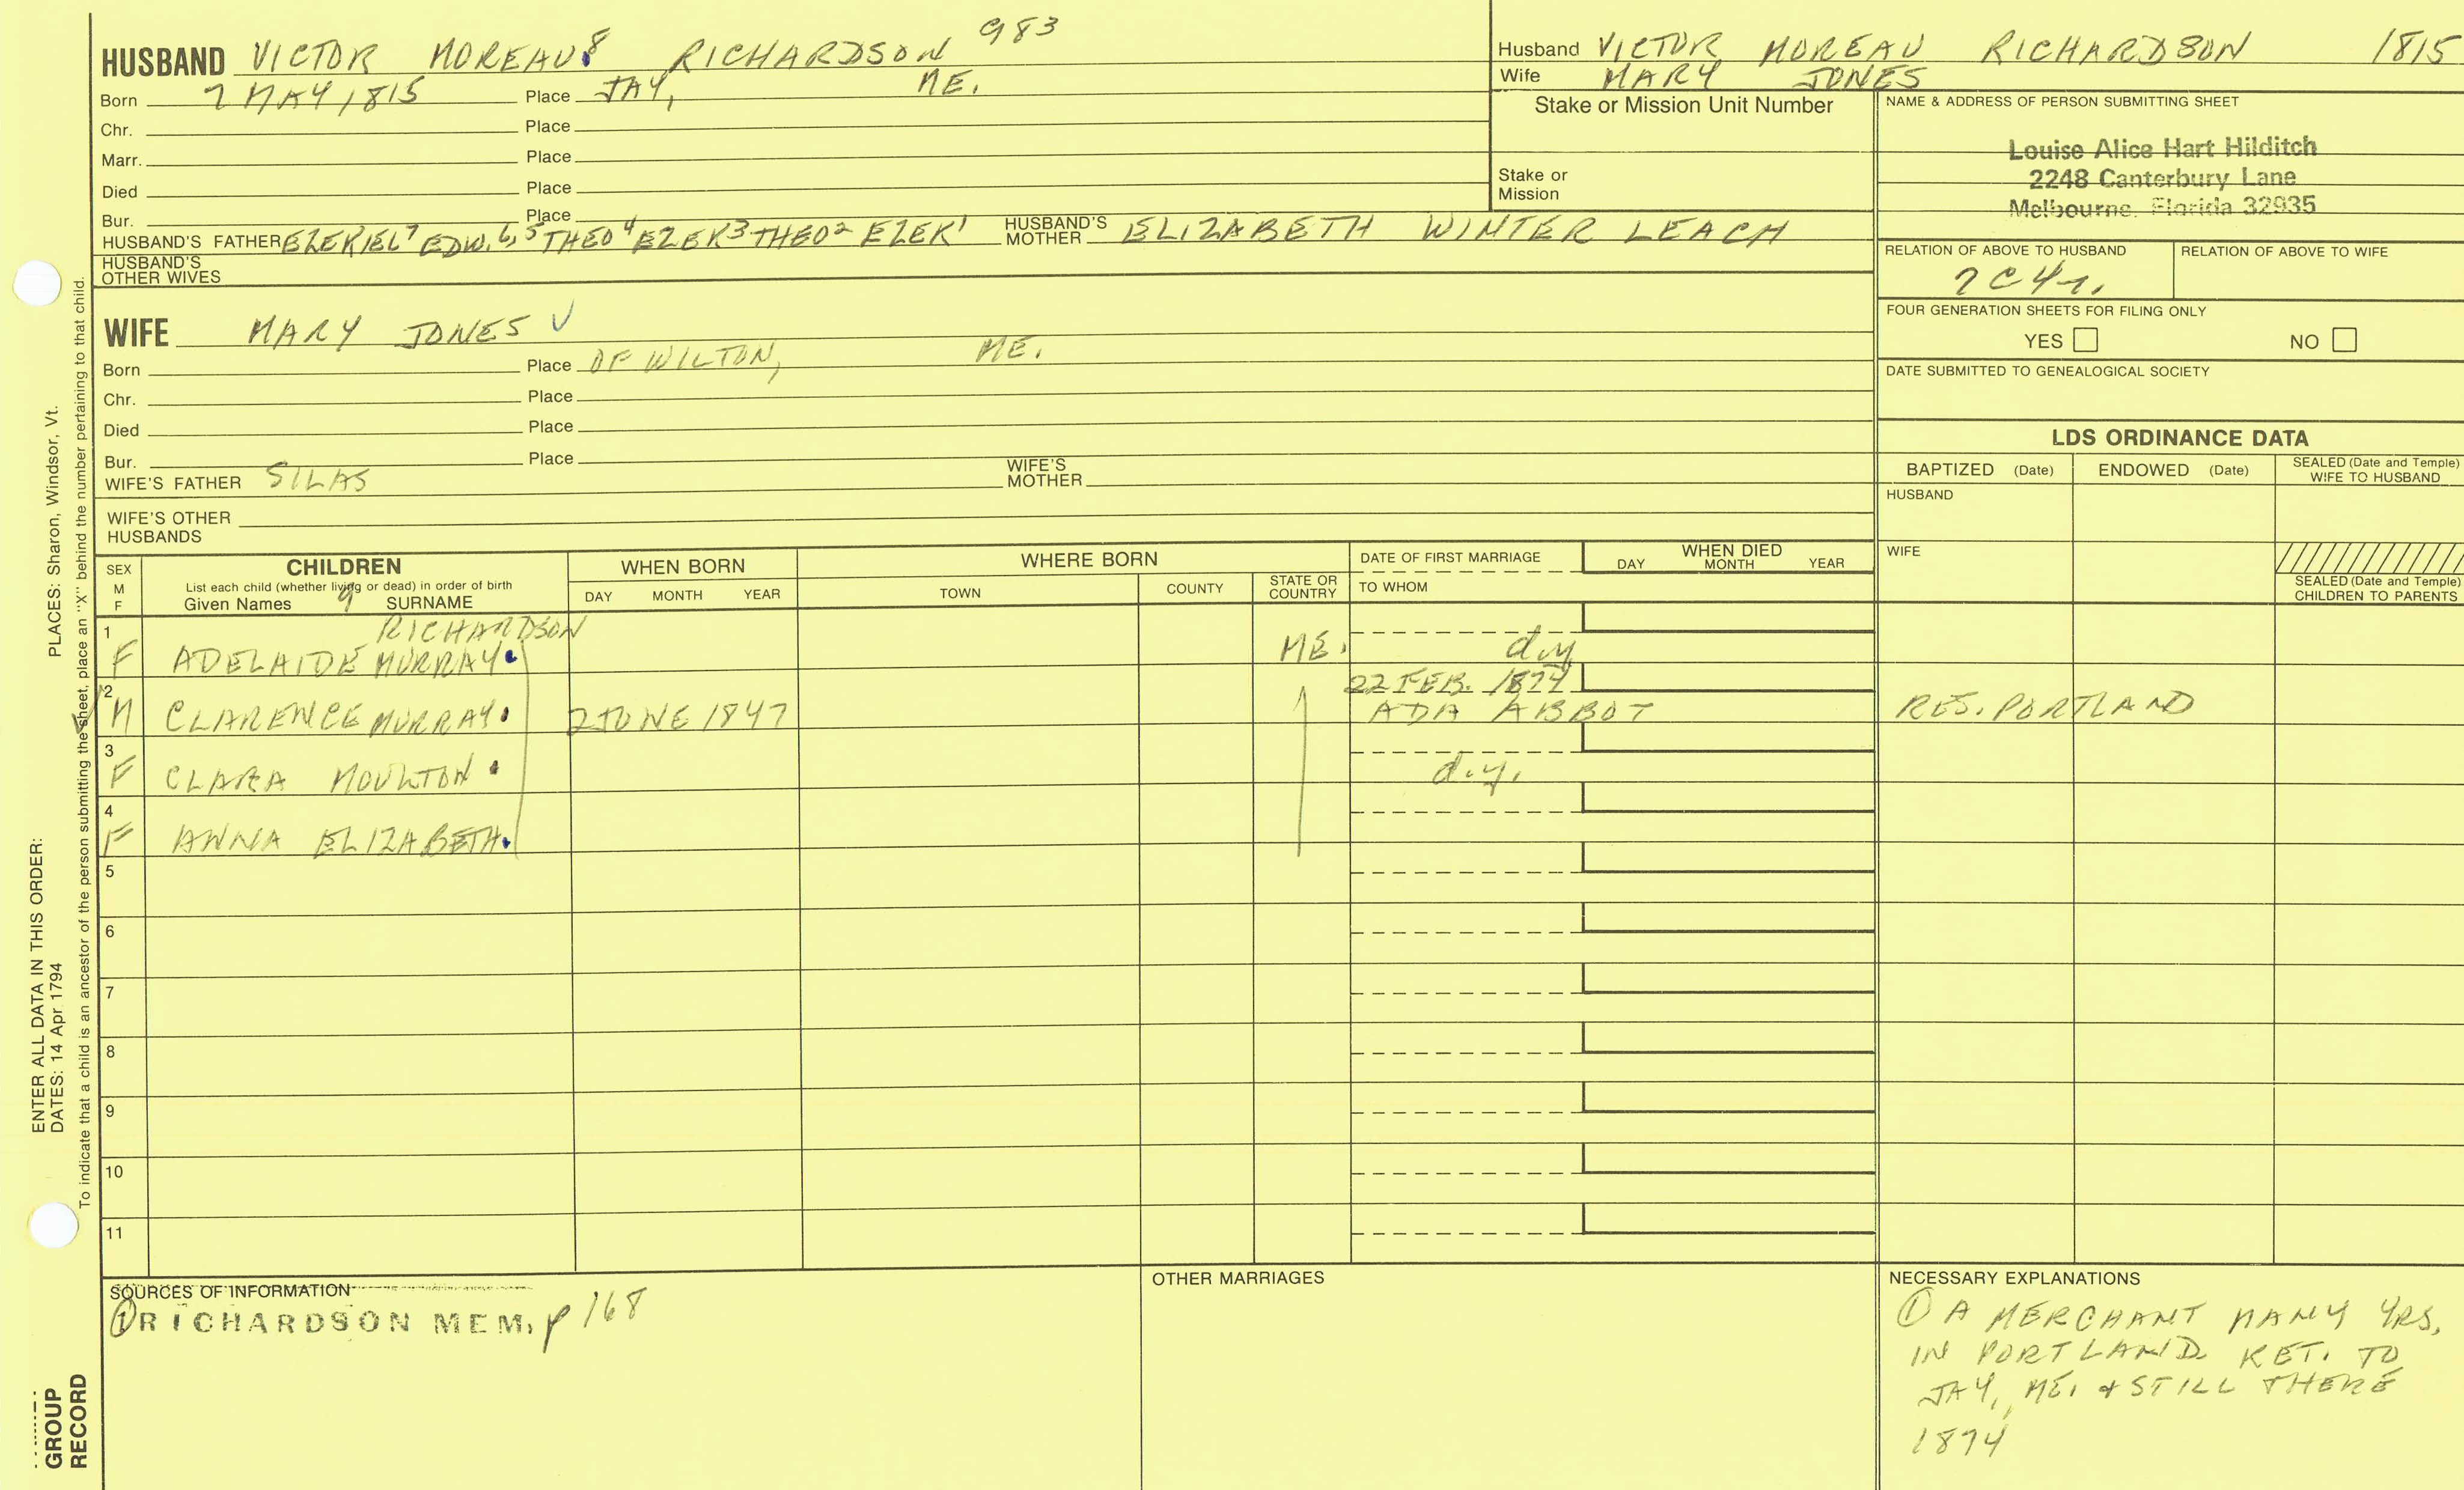 HUSBAND VICTOR MOREAU 8 RICHARDSON 983
Born 7 MAY 1815 Place JAY, ME.
Chr. Place
Marr. Place
Died Place
Bur. Place
HUSBAND'S FATHER EZEKIEL 7 EDW. 6, 5 THEO 4 EZEK 3 THEO 2 EZEK 1 HUSBAND'S MOTHER ELIZABETH WINTER LEACH
HUSBAND'S OTHER WIVES
WIFE MARY JONES V
Born Place OF WILTON, ME.
Chr. Place
Died Place
Bur. Place
WIFE'S FATHER SILAS WIFE'S MOTHER
WIFE'S OTHER HUSBANDS
Husband VICTOR MOREAU RICHARDSON 1815
Wife MARY JONES
Stake or Mission Unit Number
Stake or Mission
NAME & ADDRESS OF PERSON SUBMITTING SHEET
Louise Alice Hart Hilditch
2248 Canterbury Lane
Melbourne, Florida 32935
RELATION OF ABOVE TO HUSBAND RELATION OF ABOVE TO WIFE
7C4r.
FOUR GENERATION SHEETS FOR FILING ONLY
YES NO
DATE SUBMITTED TO GENEALOGICAL SOCIETY
LDS ORDINANCE DATA
BAPTIZED (Date) ENDOWED (Date) SEALED (Date and Temple) WIFE TO HUSBAND
HUSBAND
WIFE
SEALED (Date and Temple) CHILDREN TO PARENTS
SEX M F
CHILDREN
List each child (whether living or dead) in order of birth
Given Names 9 SURNAME
WHEN BORN
DAY MONTH YEAR
WHERE BORN
TOWN COUNTY STATE OR COUNTRY
DATE OF FIRST MARRIAGE
TO WHOM
WHEN DIED
DAY MONTH YEAR
RICHARDSON
1 F ADELAIDE MURRAY ME. d.y.
2 M CLARENCE MURRAY 2 JUNE 1847 22 FEB. 1874 ADA ABBOT RES. PORTLAND
3 F CLARA MOULTON d.y.
4 F ANNA ELIZABETH
5
6
7
8
9
10
11
SOURCES OF INFORMATION
① RICHARDSON MEM. p 168
OTHER MARRIAGES
NECESSARY EXPLANATIONS
① A MERCHANT MANY YRS,
IN PORTLAND RET. TO
JAY, ME. & STILL THERE
1874
PLACES: Sharon, Windsor, Vt.
ENTER ALL DATA IN THIS ORDER:
DATES: 14 Apr 1794
To indicate that a child is an ancestor of the person submitting the sheet, place an "X" behind the number pertaining to that child.
GROUP
RECORD